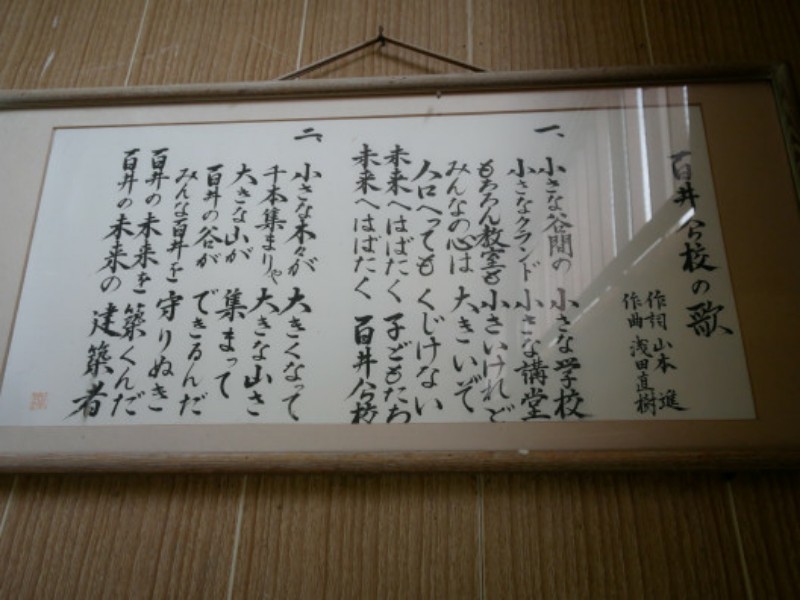 百井分校の歌
作詞 山本 進
作曲 浅田直樹
一、小さな谷間の 小さな学校
小さなグランド 小さな講堂
もちろん教室も 小さいけれど
みんなの心は 大きいぞ
人口へっても くじけない
未来へはばたく 子どもたち
未来へはばたく 百井分校
二、小さな木々が 大きくなって
千本集まりゃ 大きな山さ
大きな山が 集まって
百井の谷が できるんだ
みんな百井を 守りぬき
百井の未来を 築くんだ
百井の未来の 建築者